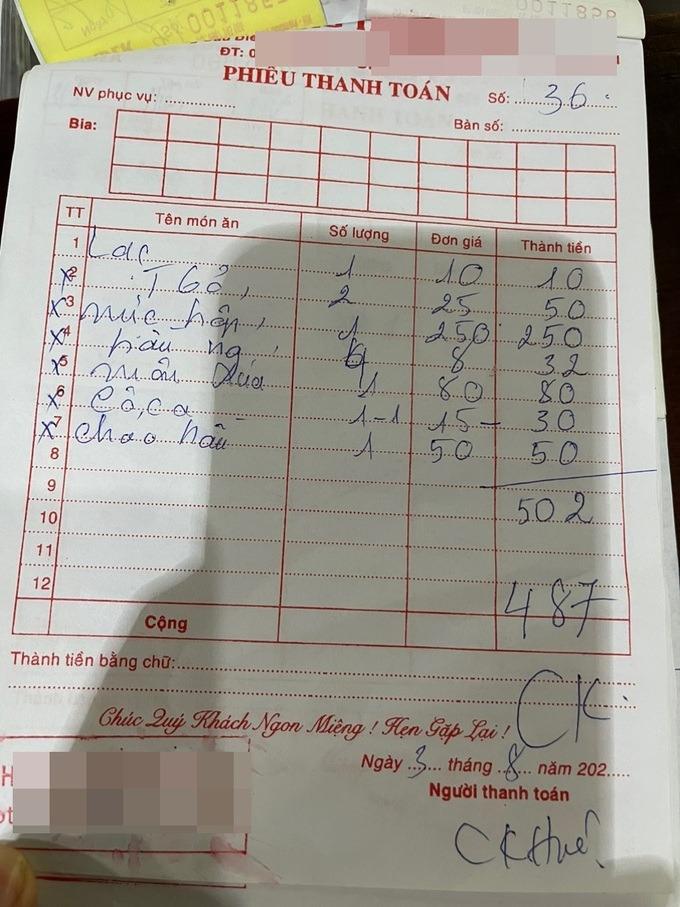 0011857
0011858
ĐT: 0
PHIẾU THANH TOÁN
NV phục vụ: ............... Số: 36
Bia: Bàn số: ...............
TT Tên món ăn Số lượng Đơn giá Thành tiền
1 Lạc 1 10 10
x2 T Gỏ, 2 25 50
x3 mực hấp, 1 250 250
x4 hàu ng, 4 8 32
x5 muôn dừa 1 80 80
x6 Cô, ca 1-1 15- 30
x7 Chao hàu 1 50 50
8
9 502
10
11
12 487
Cộng
Thành tiền bằng chữ:
CK.
Chúc Quý Khách Ngon Miệng! Hẹn Gặp Lại!
Ngày 3 tháng 8 năm 202.....
Người thanh toán
CK Huế